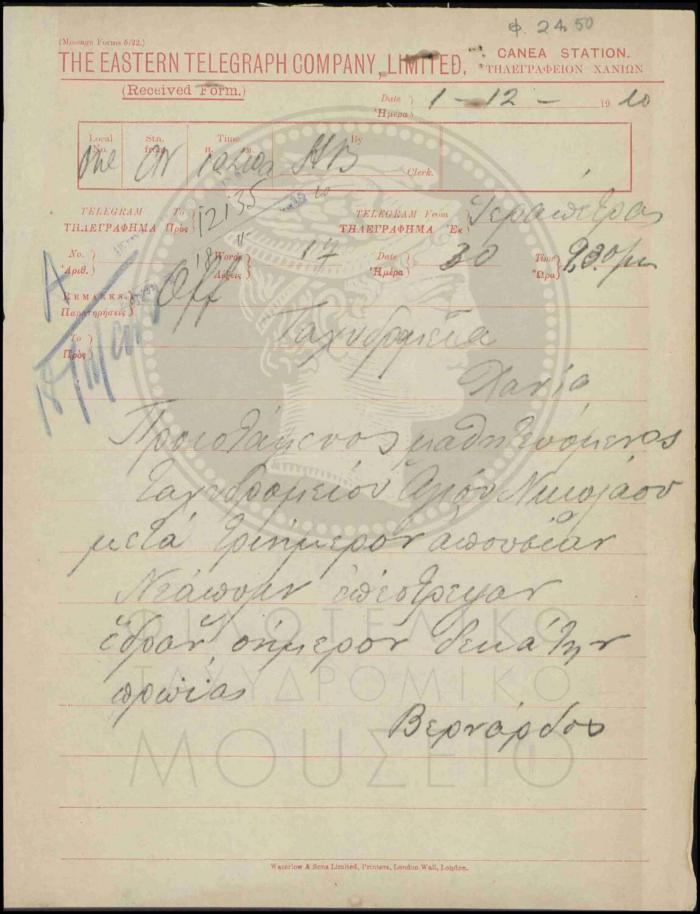 φ. 24.50
(Message Forms 6/22.)
THE EASTERN TELEGRAPH COMPANY, LIMITED, CANEA STATION.
ΤΗΛΕΓΡΑΦΕΙΟΝ ΧΑΝΙΩΝ
(Received Form.)
Date
Ἡμέρα 1-12- 1910
Local No. Stn. from Time By
Clerk.
TELEGRAM To TELEGRAM From
ΤΗΛΕΓΡΑΦΗΜΑ Πρὸς 12135 ΤΗΛΕΓΡΑΦΗΜΑ Ἐκ Ἱεράπετρας
No. Words Date Time
Ἀριθ. Λέξεις 17 Ἡμέρα 30 Ὥρα 9,30 μμ
REMARKS Off
Παρατηρήσεις
To Ταχυδρομεῖα
Πρὸς
Χανία
Προιστάμενος μαθητευόμενος
ταχυδρομείου Ἁγίου Νικολάου
μετά τριήμερον απουσίαν
Νεάπολιν επέστρεψαν
ἕδραν σήμερον δεκάτην
πρωίας
Βερνάρδος
ΦΙΛΟΤΕΛΙΚΟ
ΤΑΧΥΔΡΟΜΙΚΟ
ΜΟΥΣΕΙΟ
Waterlow & Sons Limited, Printers, London Wall, London.